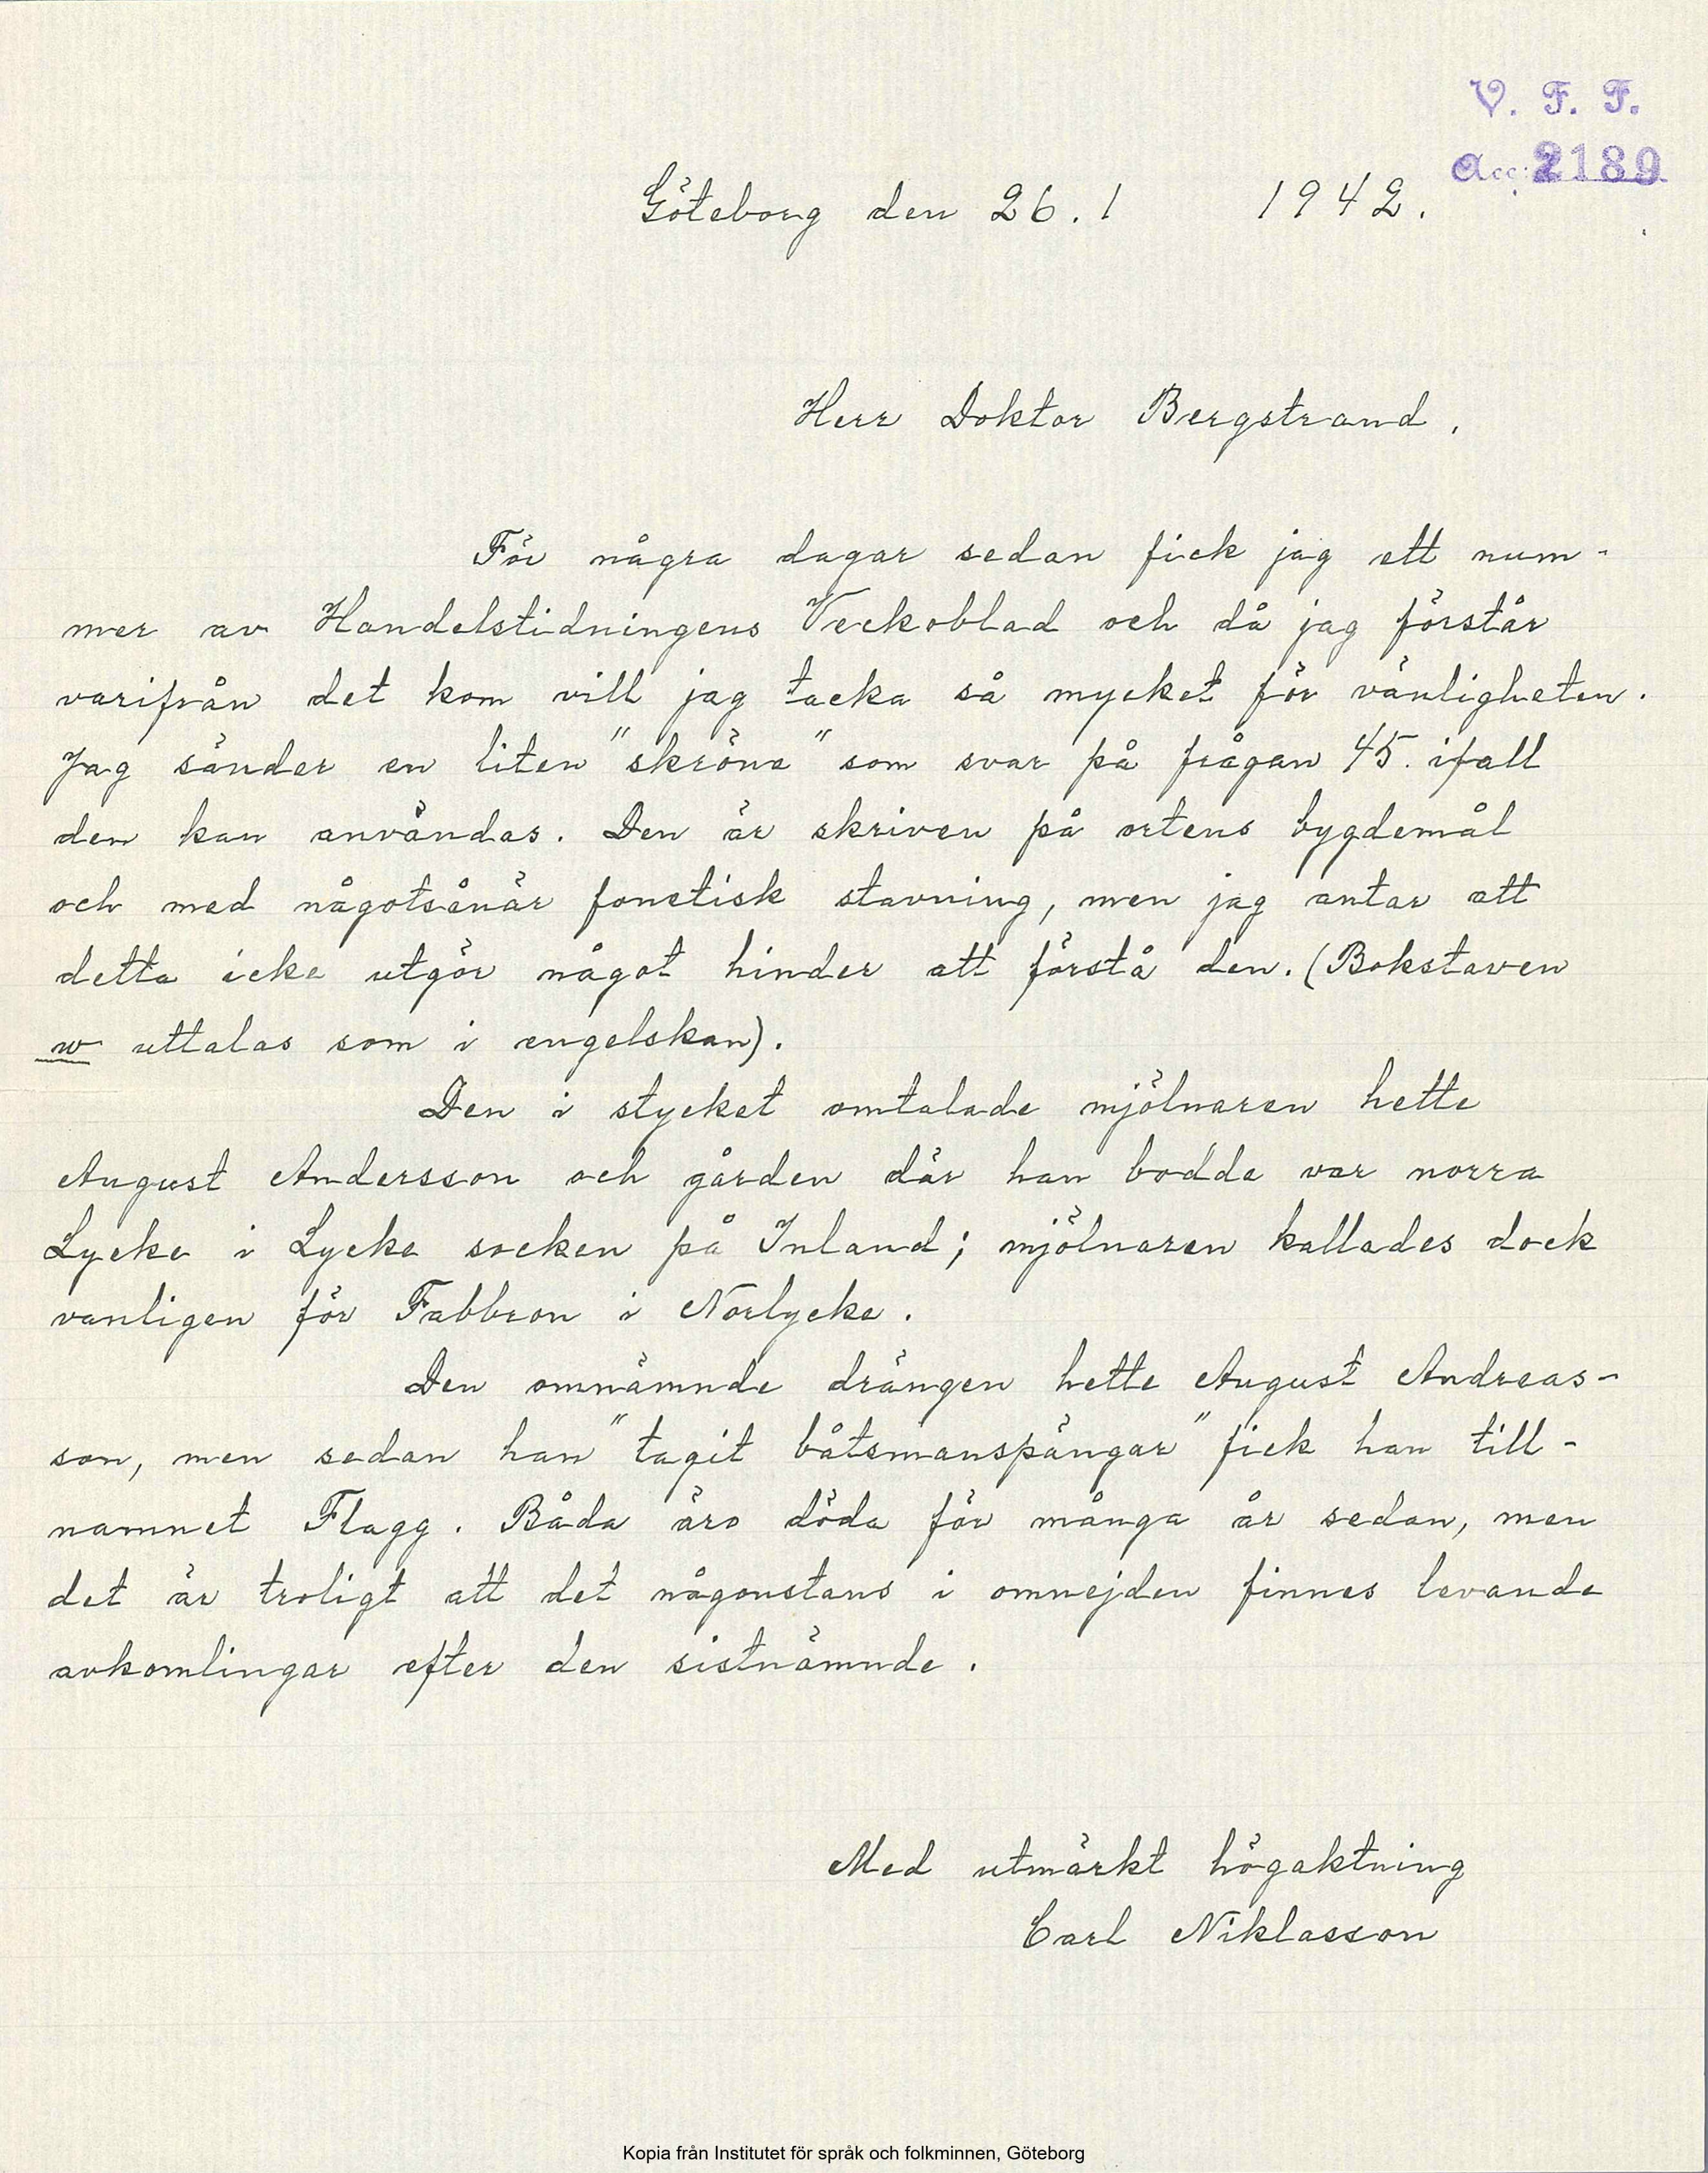 V. F. F.
Acc. 2189
Göteborg den 26.1 1942.
Herr Doktor Bergstrand.
För några dagar sedan fick jag ett num-
mer av Handelstidningens Veckoblad och då jag förstår
varifrån det kom vill jag tacka så mycket för vänligheten.
Jag sänder en liten "skröna" som svar på frågan 45. ifall
den kan användas. Den är skriven på ortens bygdemål
och med någotsånär fonetisk stavning, men jag antar att
detta icke utgör något hinder att förstå den. (Bokstaven
w uttalas som i engelskan).
Den i stycket omtalade mjölnaren hette
August Andersson och gården där han bodde var norra
Lycke i Lycke socken på Inland; mjölnaren kallades dock
vanligen för Fabbron i Norlycke.
Den omnämnde drängen hette August Andreas-
son, men sedan han "tagit båtsmanspängar" fick han till-
namnet Flagg. Båda äro döda för många år sedan, men
det är troligt att det någonstans i omnejden finnes levande
avkomlingar efter den sistnämnde.
Med utmärkt högaktning
Carl Niklasson
Kopia från Institutet för språk och folkminnen, Göteborg